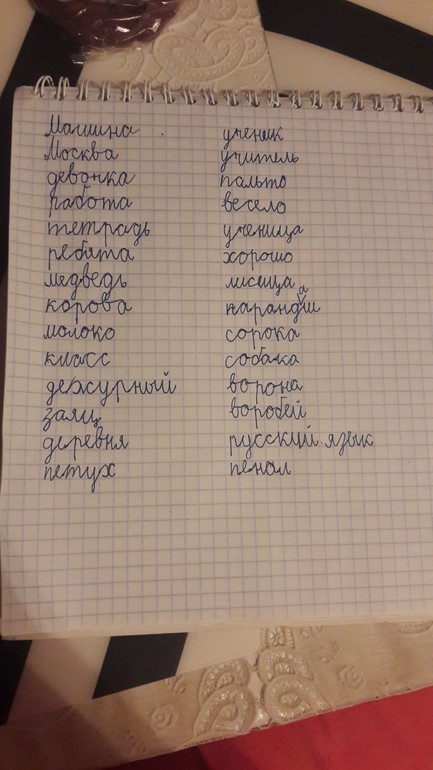 Машина
Москва
девочка
работа
тетрадь
ребята
медведь
корова
молоко
класс
дежурный
заяц
деревня
петух
ученик
учитель
пальто
весело
ученица
хорошо
лисица
карандаш
сорока
собака
ворона
воробей
русский язык
пенал